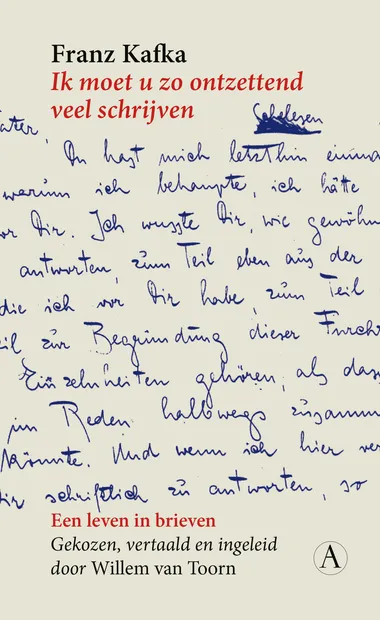 Franz Kafka
Ik moet u zo ontzettend
veel schrijven
Schelesen
ater,
Du hast mich letzthin einma
warum ich behaupte, ich hätte
vor Dir. Ich wusste Dir, wie gewöhn
antworten, zum Teil eben aus der
die ich vor Dir habe, zum Teil
eil zur Begründung dieser Furcht
Einzelnheiten gehören, als dass
im Reden halbwegs zusamm
könnte. Und wenn ich hier ver
Dir schriftlich zu antworten, so
Een leven in brieven
Gekozen, vertaald en ingeleid
door Willem van Toorn
A